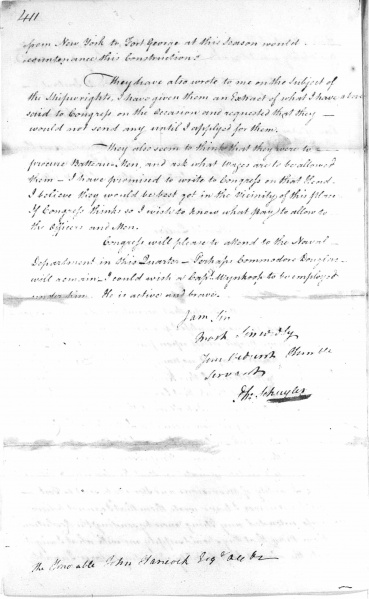 411
from New York to Fort George at this Season would
countenance this Construction.
They have also wrote to me on the Subject of
the Shipwrights, I have given them an Extract of what I have above
said to Congress on the Occasion and requested that they
would not send any until I applyed for them.
They also seem to think that they were to
procure Batteaux Men, and ask what Wages are to be allowed
them – I have promised to write to Congress on that Head.
I believe they would be best got in the Vicinity of this Place
If Congress thinks so I wish to know what Pay to allow to
the Officers and Men.
Congress will please to attend to the Naval
Department in this Quarter – Perhaps Commodore Douglas
will remain – I could wish a Capt. Wynkoop to be employed
under him. He is active and brave.
I am Sir
most Sincerely
Your Obedient Humble
Servant
Ph: Schuyler
the Honorable John Hancock Esqr. &c &c